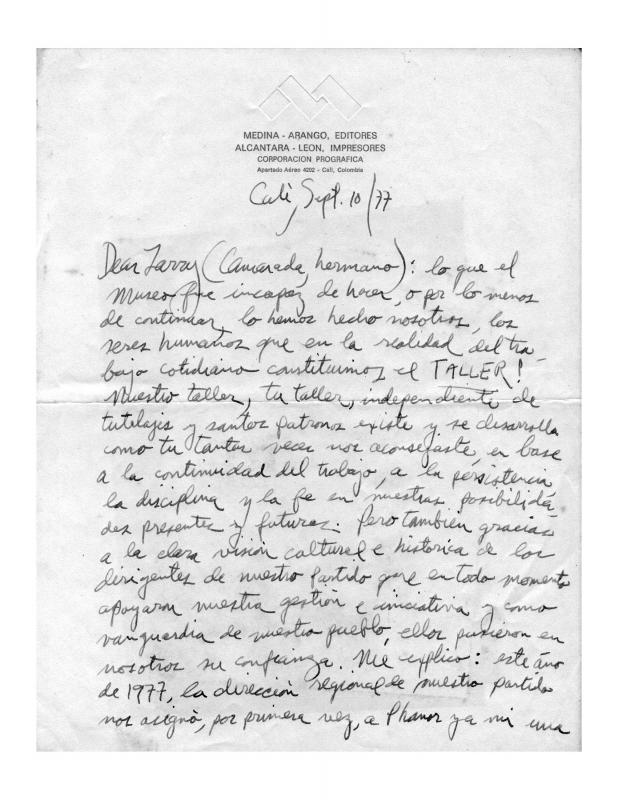 MEDINA - ARANGO, EDITORES
ALCANTARA - LEON, IMPRESORES
CORPORACION PROGRAFICA
Apartado Aéreo 4202 - Cali, Colombia
Cali, Sept. 10/77
Dear Larry (Camarada, hermano): lo que el
Museo fue incapaz de hacer, o por lo menos
de continuar, lo hemos hecho nosotros, los
seres humanos que en la realidad del tra-
bajo cotidiano constituimos el TALLER!
Nuestro taller, tu taller, independiente de
tutelajes y santos patronos existe y se desarrolla
como tu tantas veces nos aconsejaste, en base
a la continuidad del trabajo, a la persistencia,
la disciplina y la fe en nuestras posibilida-
des presentes y futuras. Pero también gracias
a la clara visión cultural e historica de los
dirigentes de nuestro partido que en todo momento
apoyaron nuestra gestión e iniciativa y como
vanguardia de nuestro pueblo, ellos pusieron en
nosotros su confianza. Me explico: este año
de 1977, la dirección regional de nuestro partido
nos asignó, por primera vez, a Phanor y a mi una